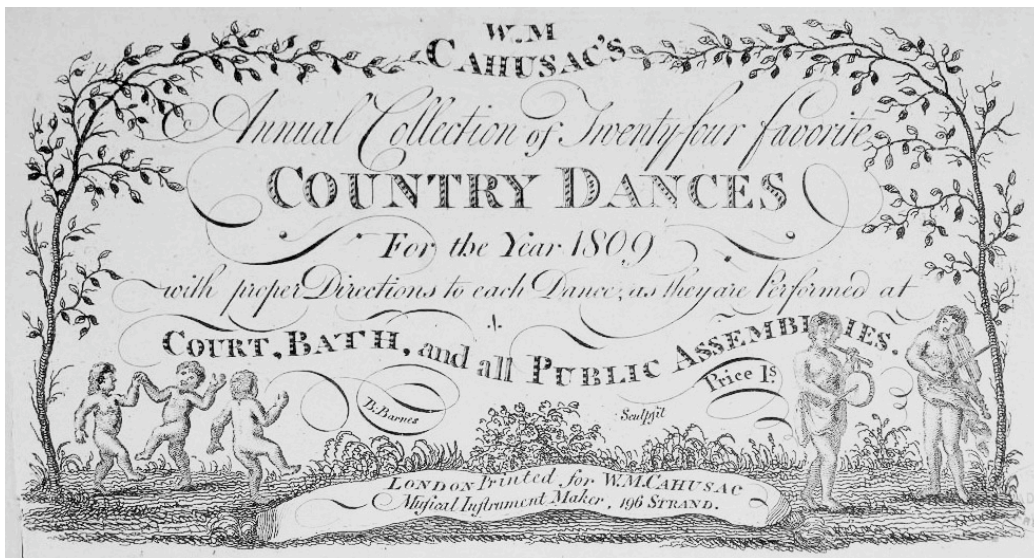 W.M
CAHUSAC's
Annual Collection of Twenty-four favorite
COUNTRY DANCES
For the Year 1809
with proper Directions to each Dance, as they are Performed at
COURT, BATH, and all PUBLIC ASSEMBLIES.
Price 1s.
B. Barnes Sculpsit
LONDON Printed for W.M. CAHUSAC
Musical Instrument Maker, 196 STRAND.